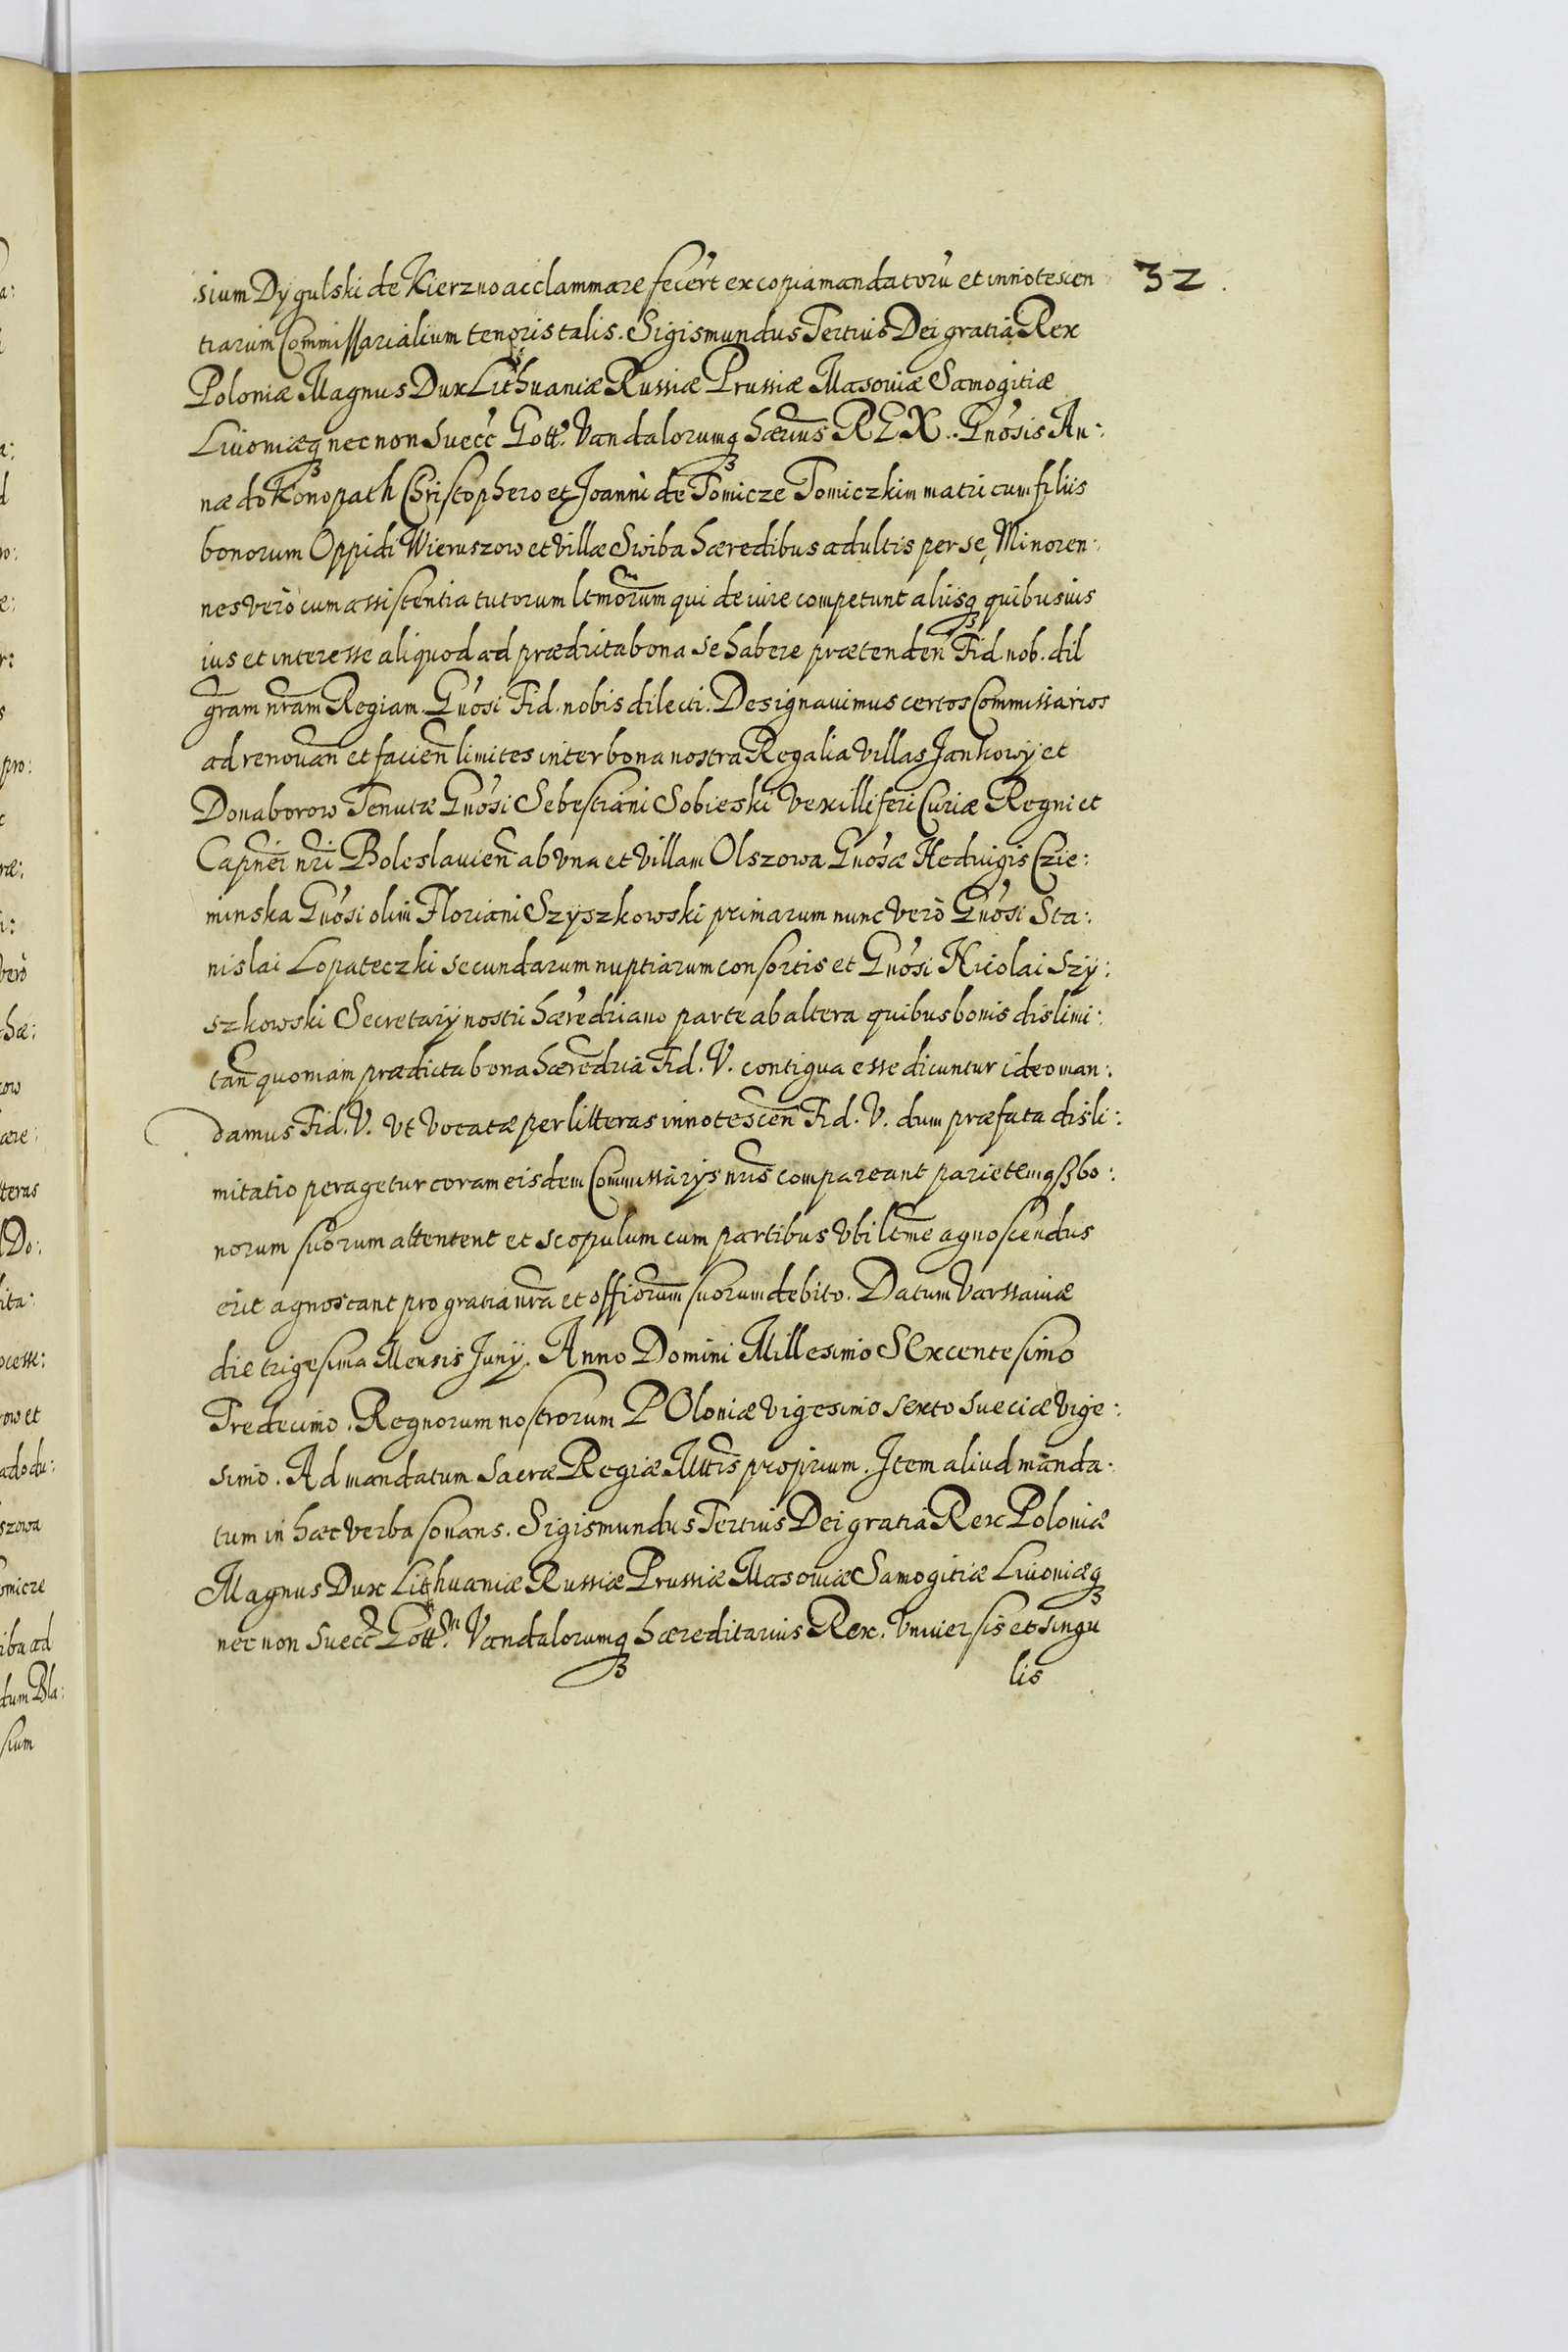 32
sium Dygulski de Kierzno acclammare fecer̃t ex copia mandatorũ et innotescen
tiarum Commissarialium tenoris talis. Sigismundus Tertius Dei gratia Rex
Poloniæ Magnus Dux Lithuaniæ Russiæ Prussiæ Masouiæ Samogitiæ
Liuoniæq3 nec non Suecc̃ Gott. Vandalorumq3 hærius REX.. Gnosis An:
næ do Konopath Christophero et Joanni de Tomicze Tomiczkim matri cum filiis
bonorum Oppidi Wieruszow et villæ Swiba hæredibus adultis per se, Minoren:
nes vero cum assistentia tutorum ltmorum qui de iure competunt aliisq3 quibusius
ius et interesse aliquod ad prædicta bona se habere prætenden̄ Fid. nob. dil
gram nram Regiam. Gnosi Fid. nobis dilecti. Designauimus certos Commissarios
ad renouan̄ et facien̄ limites inter bona nostra Regalia villas Jankowy et
Donaborow Tenutæ Gnosi Sebestiani Sobieski Vexilliferi Curiæ Regni et
Capnei nri Boleslauien̄ ab vna et villam Olszowa Gnosæ Hedvigis Czie:
minska Gnosi olim Floriani Szyszkowski primarum nunc vero Gnosi Sta:
nislai Lopateczki secundarum nuptiarum consortis et Gnosi Nicolai Szy:
szkowski Secretarij nostri hæredriano parte ab altera quibus bonis dislimi:
tan̄ quoniam prædicta bona hæredria Fid. V. contigua esse dicuntur ideo man:
damus Fid. V. vt vocatæ per litteras innotescen̄ Fid. V. dum præfata disli:
mitatio peragetur coram eisdem Commissarys nris compareant parietemq3 bo:
norum suorum attentent et scopulum cum partibus vbi ltme agnoscendus
erit agnoscant pro gratia nra et offiorum suorum debito. Datum Varssauiæ
die trigesima Mensis Juny. Anno Domini Millesimo SExcentesimo
Tredecimo. Regnorum nostrorum POloniæ vigesimo sexto Sueciæ vige:
simo. Ad mandatum Sacræ Regiæ Mttis proprium. Item aliud manda:
tum in hæc verba sonans. Sigismundus Tertius Dei gratia Rex Poloniæ
Magnus Dux Lithuaniæ Russiæ Prussiæ Masouiæ Samogitiæ Liuoniæq3
nec non Suecc̃ Gott. Vandalorumq3 hæreditarius Rex. Vniuersis et singu
lis